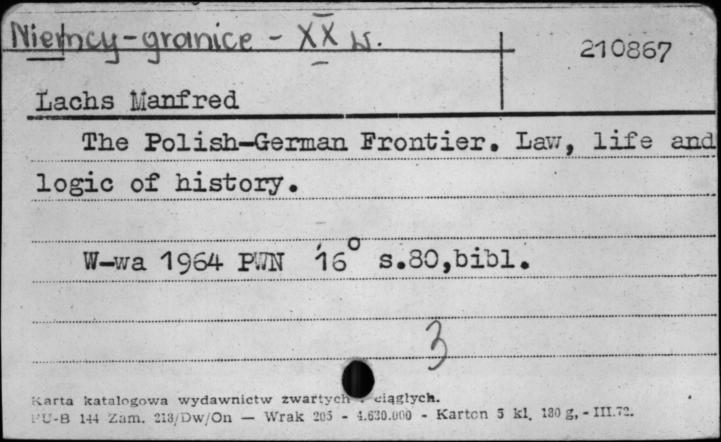 Niemcy-granice - XX w.
210867
Lachs Manfred
The Polish-German Frontier. Law, life and
logic of history.
W-wa 1964 PWN 16° s.80,bibl.
3
Karta katalogowa wydawnictw zwartych i ciągłych.
PU-B 144 Zam. 213/Dw/On — Wrak 205 - 4.630.000 - Karton 5 kl. 180 g, - III.72.